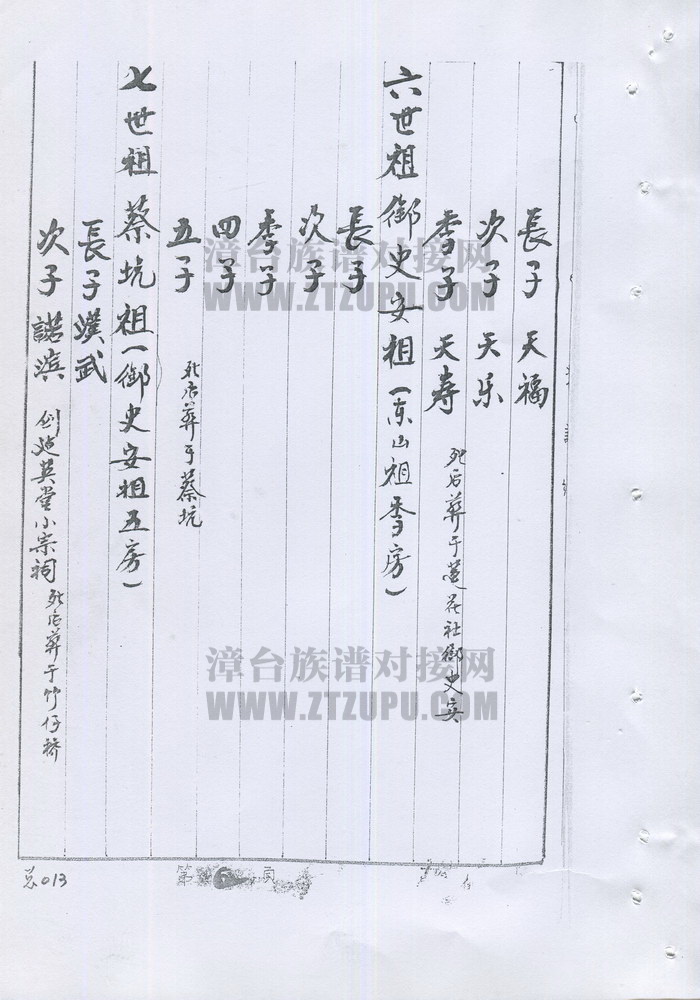 長子 天福
次子 天乐
季子 天寿 死后葬于莲花社御史安
六世祖 御史安祖(东山祖季房)
長子
次子
季子
四子
五子 死后葬于蔡坑
七世祖 蔡坑祖(御史安祖五房)
長子 武
次子 諾滨 创 英堂小宗祠 死后葬于竹仔桥
总013
第 6 页
漳台族谱对接网
WWW.ZTZUPU.COM
漳台族谱对接网
WWW.ZTZUPU.COM